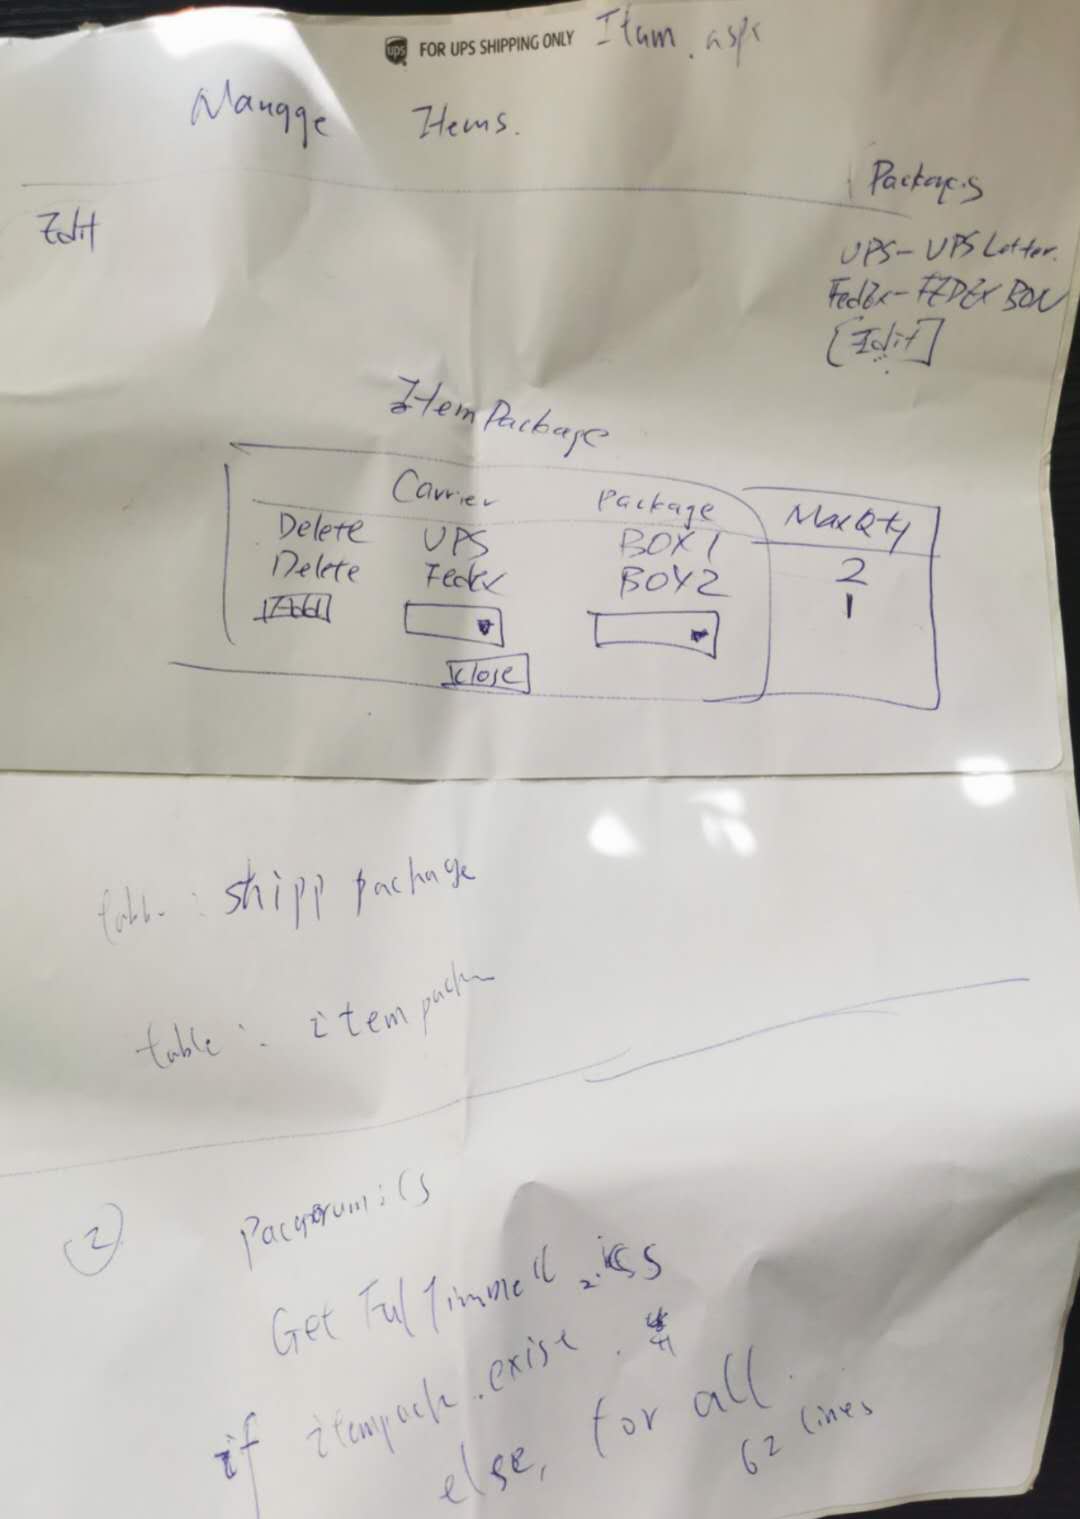 ups FOR UPS SHIPPING ONLY Item.aspx
Manage Items.
Packages
Edit
UPS-UPS Letter.
FedEx-FEDEX BOX
[Edit]
Item Package
Carrier Package MaxQty
Delete UPS BOX1 2
Delete Fedex BOX2 1
Add
Close
table: shipp package
table: itempack
2
Get
if itempack.exise.
else, for all.
62 lines